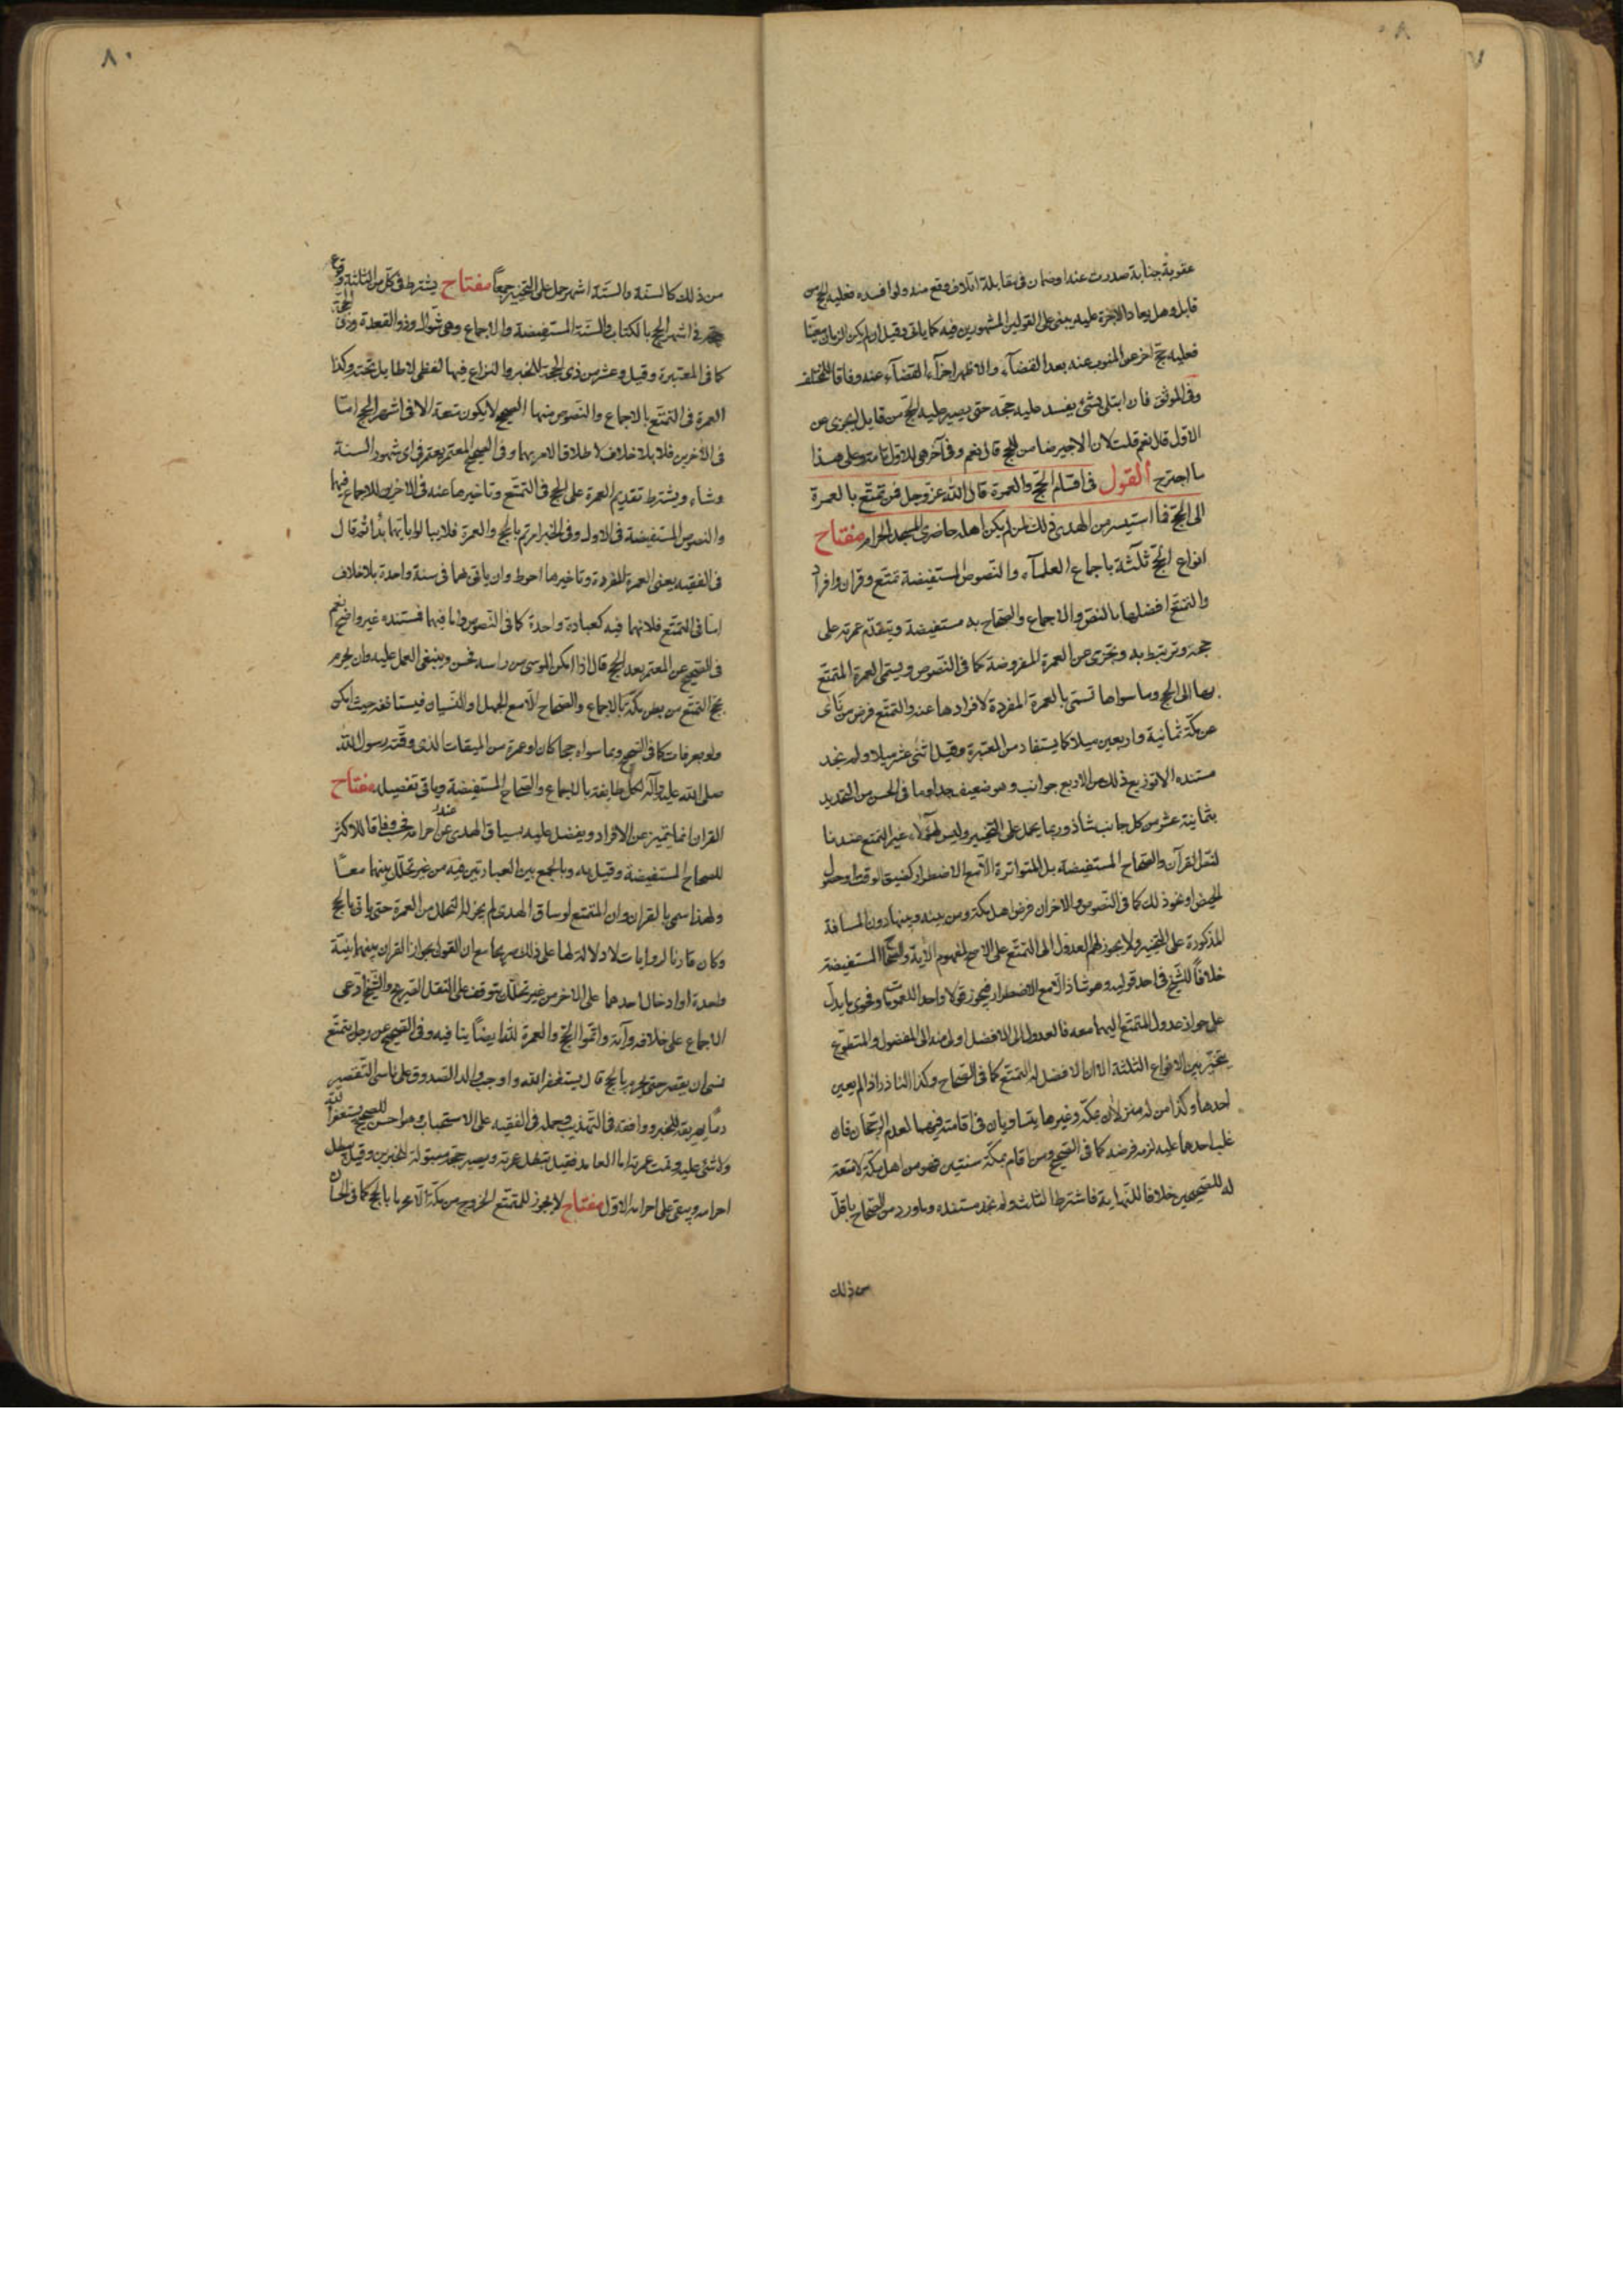 عقوبة جناية صدرت عنه او ضمان فى مقابلة اتلاف وقع منه ولو افسده فعليه الحج من
قابل وهل يعاد الاجرة عليه يبنى على القولين المشهورين فيه كما ياتى وقيل ان لم يكن الزمان معينا
فعليه حج اخر عن المنوب عنه بعد القضآء والاظهر اجزآء القضآء عنه وفاقا للمختلف
وفى الموثق فان ابتلى بشئ يفسد عليه حجه حتى يصير عليه الحج من قابل ايجزى عن
الاول قال نعم قلت لان الاجير ضامن للحج قال نعم وفى آخر هى للاول تامة وعلى هذا
ما اجترح القول فى اقسام الحج والعمرة قال الله عز وجل فمن تمتع بالعمرة
الى الحج فما استيسر من الهدى ذلك لمن لم يكن اهله حاضرى المسجد الحرام مفتاح
انواع الحج ثلثة باجماع العلمآء والنصوص المستفيضة تمتع وقران وافراد
والتمتع افضلها بالنص والاجماع والصحاح به مستفيضة ويتقدم عمرته على
حجه وترتبط به وتجزى عن العمرة المفروضة كما فى النصوص ويسمى العمرة المتمتع
بها الى الحج وما سواها تسمى بالعمرة المفردة لافرادها عنه والتمتع فرض من نأى
عن مكة ثمانية واربعين ميلا كما يستفاد من المعتبرة وقيل اثنى عشر ميلا ولم نجد
مستنده الا توزيع ذلك من الاربع جوانب وهو ضعيف جدا وما فى الحسن من التحديد
بثمانية عشر من كل جانب شاذ وربما يحمل على التخيير وليس لهؤلاء غير التمتع عندنا
لنص القرآن والصحاح المستفيضة بل المتواترة الا مع الاضطرار كضيق الوقت او حصول
الحيض او نحو ذلك كما فى النصوص والاخران فرض اهل مكة ومن بينه وبينها دون المسافة
المذكورة على التخيير ولا يجوز لهم العدول الى التمتع على الاصح لمفهوم الآية والصحاح المستفيضة
خلافا للشيخ فى احد قوليه وهو شاذ الا مع الاضطرار فيجوز قولا واحدا للعمومات وفحوى ما يدل
على جواز عدول المتمتع اليهما معه فالعدول الى الافضل اولى منه الى المفضول والمتطوع
يتخير بين الانواع الثلثة الا ان الافضل له التمتع كما فى الصحاح وكذا الناذر اذا لم يعين
احدها وكذا من له منزلان بمكة وغيرها يتساويان فى اقامته فيهما لعدم الرجحان فان
غلب احدهما عليه لزمه فرضه كما فى الصحيح ومن اقام بمكة سنتين فهو من اهل مكة لا متعة
له للصحيحين خلافا للنهاية فاشترط الثالث ولم نجد مستنده وما ورد من الصحاح باقل
من ذلك
من ذلك كالسنة والستة اشهر حمل على التخيير جمعا مفتاح يشترط فى كل من الثلثة وقوع
حجه فى اشهر الحج بالكتاب والسنة المستفيضة والاجماع وهى شوال وذو القعدة وذى الحجة
كما فى المعتبرة وقيل وعشر من ذى الحجة للخبر والنزاع فيها لفظى لا طايل تحته وكذا
العمرة فى التمتع بالاجماع والنصوص منها الصحيح لا يكون متعة الا فى اشهر الحج اما
فى الاخرين فلا بلا خلاف لاطلاق الامر بهما وفى الصحيح المعتمر يعتمر فى اى شهور السنة
وشاء ويشترط تقديم العمرة على الحج فى التمتع وتاخيرها عنه فى الاخرين للاجماع فيها
والنصوص المستفيضة فى الاول وفى الخبر امرتم بالحج والعمرة فلا يبالوا بايها بدأتم قال
فى الفقيه يعنى العمرة المفردة وتاخيرها احوط وان ياتى بهما فى سنة واحدة بلا خلاف
اما فى التمتع فلانهما فيه كعبادة واحدة كما فى النصوص واما فيهما فمستنده غير واضح نعم
فى الصحيح عن المعتمر بعد الحج قال اذا امكن الموسى من راسه فحسن وينبغى العمل عليه وان يحرم
بحج التمتع من بطن مكة بالاجماع والصحاح الا مع الجهل والنسيان فيستانفه حيث امكن
ولو بعرفات كما فى الصحيح وبما سواه حجا كان او عمرة من الميقات الذى وقته رسول الله
صلى الله عليه وآله لكل طايفة بالاجماع والصحاح المستفيضة وياتى تفصيله مفتاح
القران انما يتميز عن الافراد ويفضل عليه بسياق الهدى عند احرامه فحسب وفاقا للاكثر
للصحاح المستفيضة وقيل به وبالجمع بين العبادتين فيه من غير تحلل بينهما معا
ولهذا سمى بالقران وان المتمتع لو ساق الهدى لم يجز له التحلل من العمرة حتى ياتى بالحج
وكان قارنا لروايات لا دلالة لها على ذلك صريحا مع ان القول بجواز القران بينهما بنية
واحدة او ادخال احدهما على الاخر من غير تحلل يتوقف على النقل الصريح والشيخ ادعى
الاجماع على خلافه وآية واتموا الحج والعمرة لله ايضا ينافيه وفى الصحيح عن رجل يتمتع
نسى ان يقصر حتى يحرم بالحج قال يستغفر الله واوجب والد الصدوق على ناسى التقصير
دما يهريقه للخبر ووافقه فى التهذيب وحمله فى الفقيه على الاستحباب وهو احسن للصحيح يستغفر الله
ولا شئ عليه وتمت عمرته اما العامد فقيل تبطل عمرته ويصير حجه مبتولة للخبرين وقيل يبطل
احرامه ويبقى على احرامه الاول مفتاح لا يجوز للمتمتع الخروج من مكة الا محرما بالحج كما فى الحسان